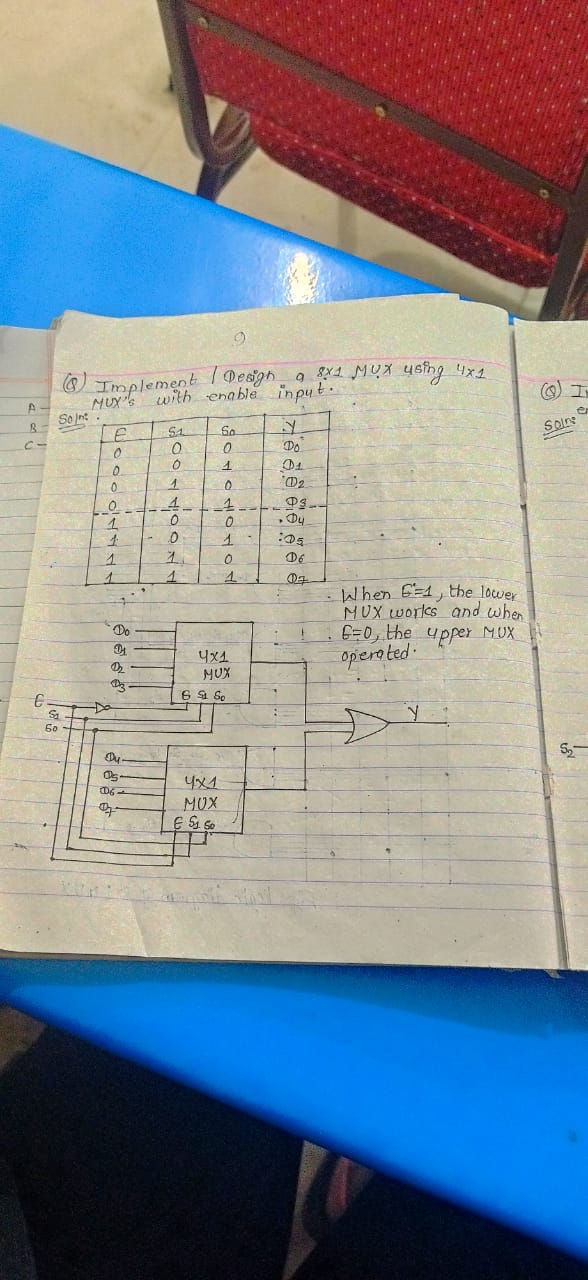 9
Q) Implement / Design a 8x1 MUX using 4x1
MUX's with enable input.
Soln:
E S1 S0 Y
0 0 0 D0
0 0 1 D1
0 1 0 D2
0 1 1 D3
1 0 0 D4
1 0 1 D5
1 1 0 D6
1 1 1 D7
When E=1, the lower
MUX works and when
E=0, the upper MUX
operated.
D0
D1
D2
D3
4x1
MUX
E S1 S0
E
S1
S0
Y
D4
D5
D6
D7
4x1
MUX
E S1 S0
A
B
C
Q) I
e
Soln:
S2